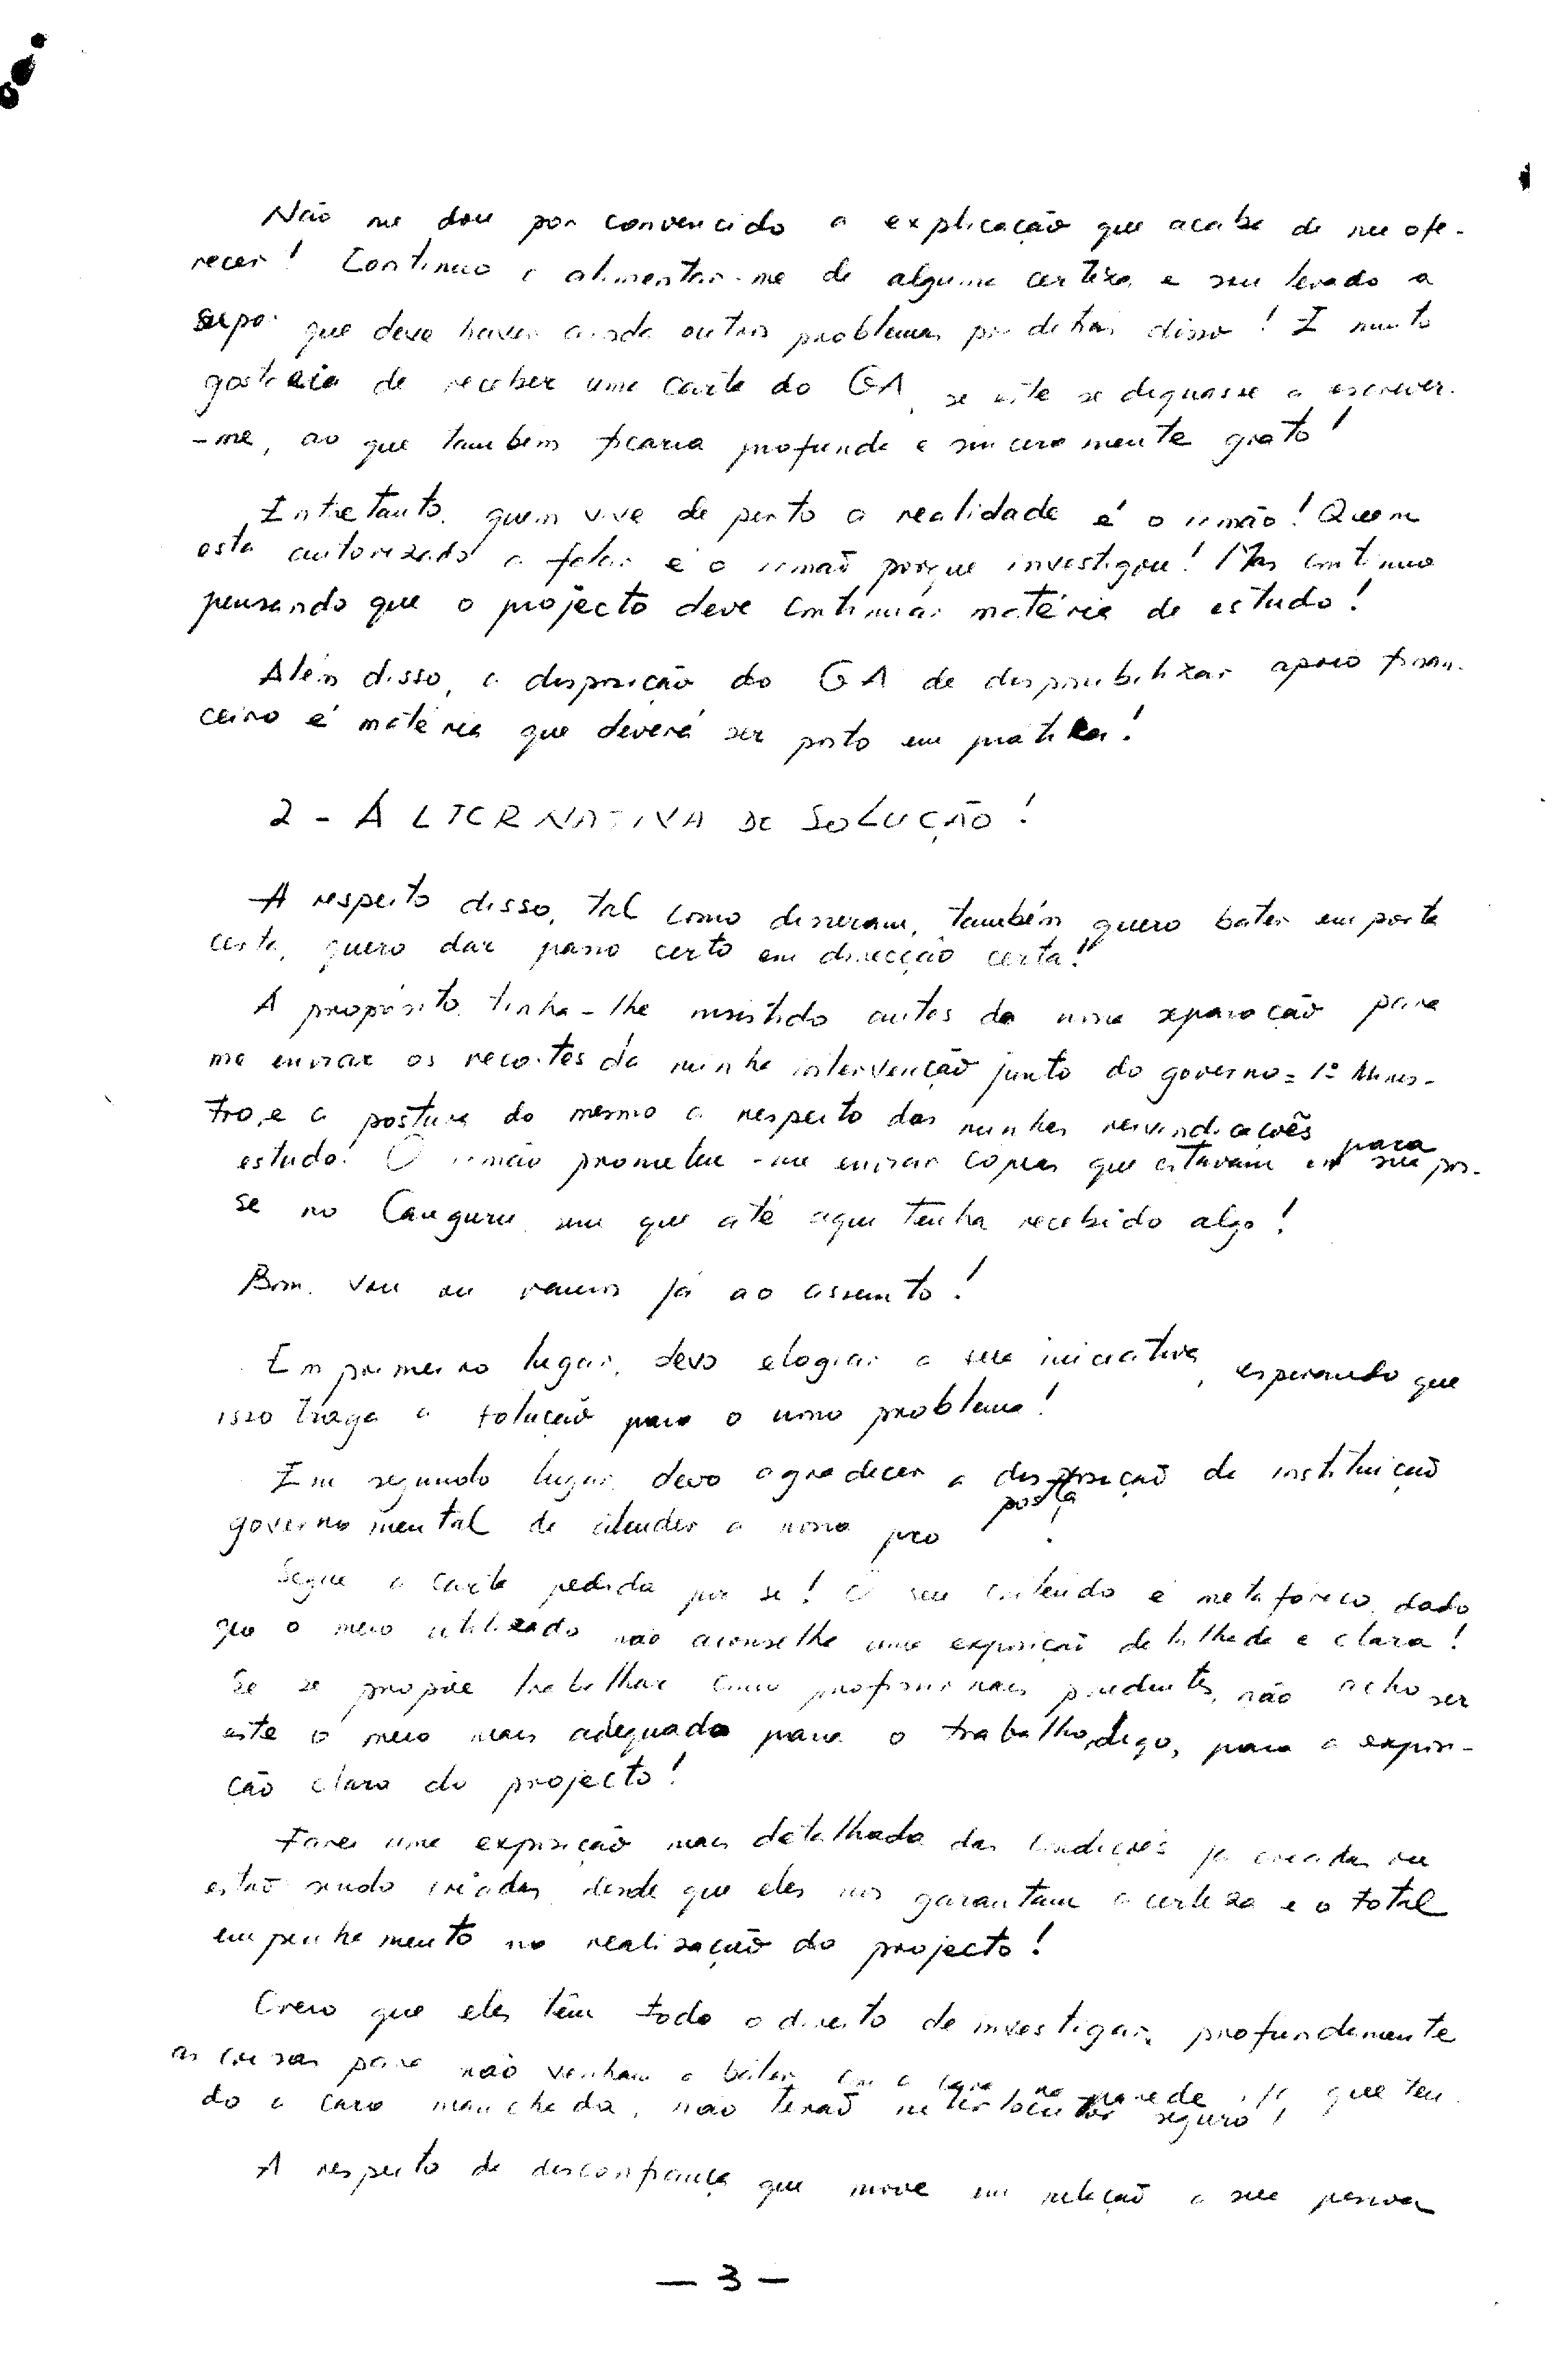 Não me dou por convencido a explicação que acaba de me ofe-
recer! Continuo a alimentar-me de alguma certeza e sou levado a
supor que deve haver ainda outros problemas por detrás disso! E muito
gostaria de receber uma carta do GA, se este se dignasse a escrever-
-me, ao que também ficaria profunda e sinceramente grato!
Entretanto, quem vive de perto a realidade é o irmão! Quem
está autorizado a falar é o irmão porque investigou! Mas continuo
pensando que o projecto deve continuar matéria de estudo!
Além disso, a disposição do GA de disponibilizar apoio finan-
ceiro é matéria que deverá ser posto em prática!
2 - ALTERNATIVA DE SOLUÇÃO!
A respeito disso, tal como disseram, também quero bater em porta
certa, quero dar passo certo em direcção certa!
A propósito, tinha-lhe insistido antes da nossa separação para
me enviar os recortes da minha intervenção junto do governo = 1º Minis-
tro, e a postura do mesmo a respeito das minhas reivindicações para
estudo! O irmão prometeu-me enviar cópias que estavam em sua pos-
se no Canguru sem que até aqui tenha recebido algo!
Bom, vou ou vamos já ao assunto!
Em primeiro lugar, devo elogiar a sua iniciativa, esperando que
isso traga a solução para o nosso problema!
Em segundo lugar, devo agradecer a disposição da instituição
governamental de atender a nossa proposta.
Segue a carta pedida por si! O seu conteúdo é metafórico, dado
que o meio utilizado não aconselha uma exposição detalhada e clara!
Se se propõe trabalhar como profissionais prudentes, não acho ser
este o meio mais adequado para o trabalho, digo, para a exposi-
ção clara do projecto!
Farei uma exposição mais detalhada das condições já criadas ou
estão sendo criadas, desde que eles nos garantam a certeza e o total
empenhamento na realização do projecto!
Creio que eles têm todo o direito de investigar, profundamente
as coisas para não venham a bater com a cara na parede que ten-
do a cara manchada, não terão interlocutor seguro!
A respeito da desconfiança que move em relação a sua pessoa
- 3 -